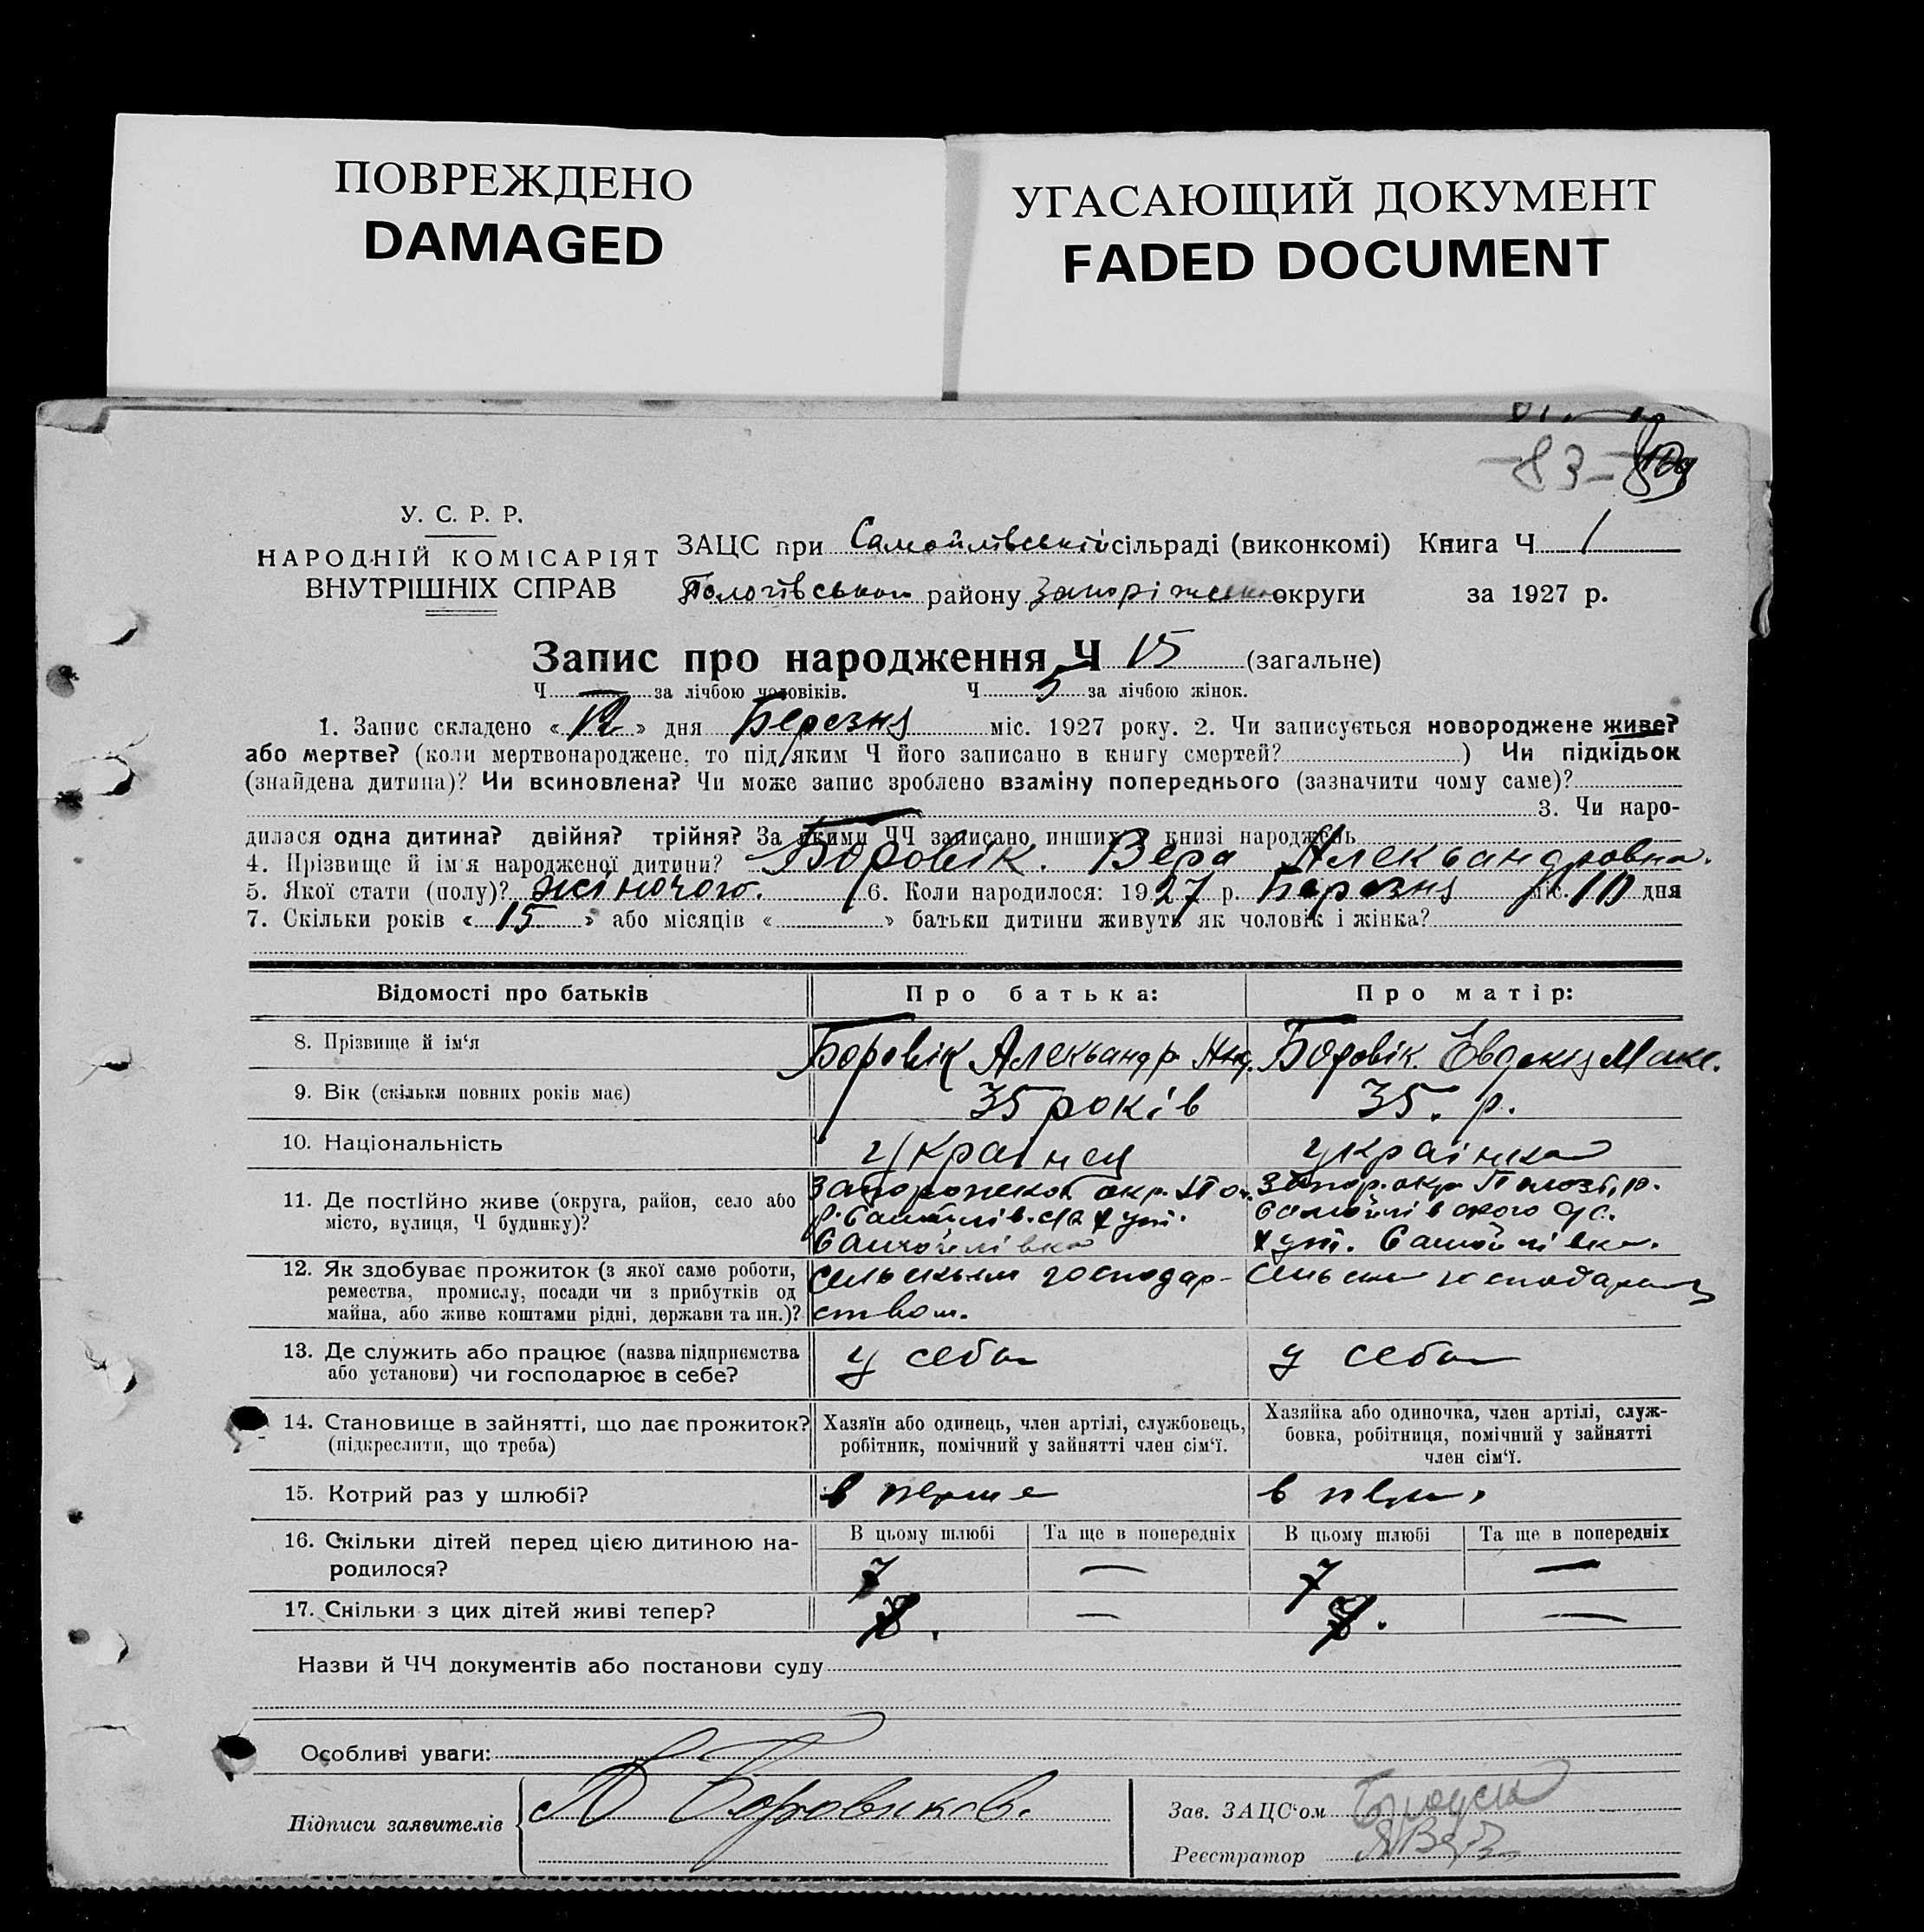 ПОВРЕЖДЕНО
DAMAGED
УГАСАЮЩИЙ ДОКУМЕНТ
FADED DOCUMENT
-83-
У. С. Р. Р.
НАРОДНІЙ КОМІСАРІЯТ
ВНУТРІШНІХ СПРАВ
ЗАЦС при Самойлівській сільраді (виконкомі) Книга Ч 1
Пологівського району Запоріжської округи за 1927 р.
Запис про народження Ч 15 (загальне)
Ч — за лічбою чоловіків. Ч 5 за лічбою жінок.
1. Запис складено « 12 » дня Березня міс. 1927 року. 2. Чи записується новороджене живе?
або мертве? (коли мертвонароджене, то під яким Ч його записано в книгу смертей? ) Чи підкідьок
(знайдена дитина)? Чи всиновлена? Чи може запис зроблено взаміну попереднього (зазначити чому саме)?
3. Чи наро-
дилася одна дитина? двійня? трійня? За якими ЧЧ записано инших в книзі народжень
4. Прізвище й ім'я народженої дитини? Боровік. Вера Александровна.
5. Якої стати (полу)? жіночого. 6. Коли народилося: 1927 р. Березня міс. 10 дня
7. Скільки років « 15 » або місяців « » батьки дитини живуть як чоловік і жінка?
Відомості про батьків
Про батька:
Про матір:
8. Прізвище й ім'я
Боровік Александр Анд.
Боровік. Евдокия Макс.
9. Вік (скільки повних років має)
35 років
35. р.
10. Національність
українец
українка
11. Де постійно живе (округа, район, село або
місто, вулиця, Ч будинку)?
Запорожской окр. По
р. Самойлів. с/р хут.
Самойлівка
Запор. окр. Пологів, р.
Самойлівского с/с.
хут. Самойлівка.
12. Як здобуває прожиток (з якої саме роботи,
ремества, промислу, посади чи з прибутків од
майна, або живе коштами рідні, держави та ин.)?
сельським господар-
ством.
сельским господарств
13. Де служить або працює (назва підприємства
або установи) чи господарює в себе?
у себе
у себе
14. Становище в зайнятті, що дає прожиток?
(підкреслити, що треба)
Хазяїн або одинець, член артілі, службовець,
робітник, помічний у зайнятті член сім'ї.
Хазяйка або одиночка, член артілі, служ-
бовка, робітниця, помічний у зайнятті
член сім'ї.
15. Котрий раз у шлюбі?
в перше
в перш.
16. Скільки дітей перед цією дитиною на-
родилося?
В цьому шлюбі
Та ще в попередніх
В цьому шлюбі
Та ще в попередніх
7 — 7 —
17. Скільки з цих дітей живі тепер?
— —
Назви й ЧЧ документів або постанови суду
Особливі уваги:
Підписи заявителів
А Боровиков.
Зав. ЗАЦС'ом
Реєстратор